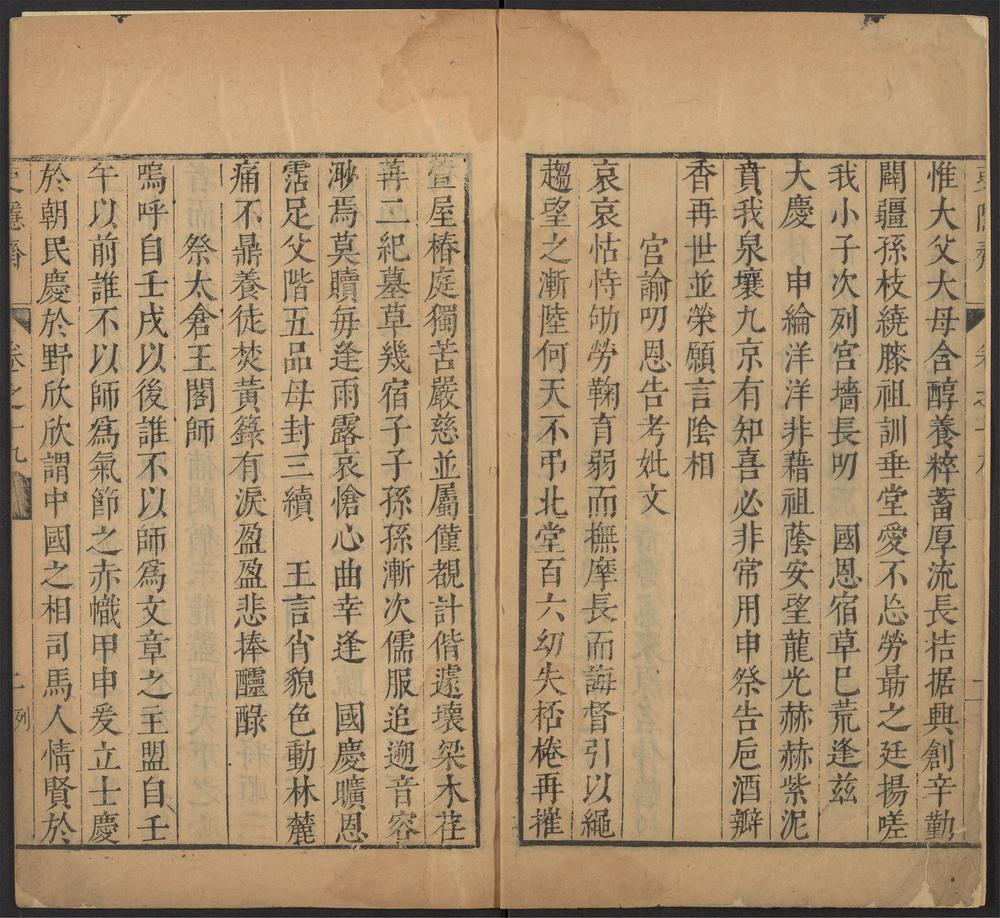 惟大父大母含醇養粹蓄厚流長拮据興創辛勤
闢疆孫枝繞膝祖訓垂堂愛不忘勞朂之廷揚嗟
我小子次列宮墻長叨 國恩宿草巳荒逢茲
大慶 申綸洋洋非藉祖蔭安望龍光赫赫紫泥
賁我泉壤九京有知喜必非常用申祭告巵酒瓣
香再世並榮願言陰相
宮諭叨恩告考妣文
哀哀怙恃劬勞鞠育弱而撫摩長而誨督引以繩
趨望之漸陸何天不弔北堂百六幼失桮棬再摧
萱屋椿庭獨苦嚴慈並屬僅覩計偕遽壞梁木荏
苒二紀墓草幾宿子子孫孫漸次儒服追遡音容
渺焉莫贖每逢雨露哀愴心曲幸逢 國慶曠恩
霑足父階五品母封三續 王言肖貌色動林麓
痛不鼎養徒焚黃錄有淚盈盈悲捧醽醁
祭太倉王閣師
嗚呼自壬戌以後誰不以師爲文章之主盟自壬
午以前誰不以師爲氣節之赤幟甲申爰立士慶
於朝民慶於野欣欣謂中國之相司馬人情賢於
卷之十九
二